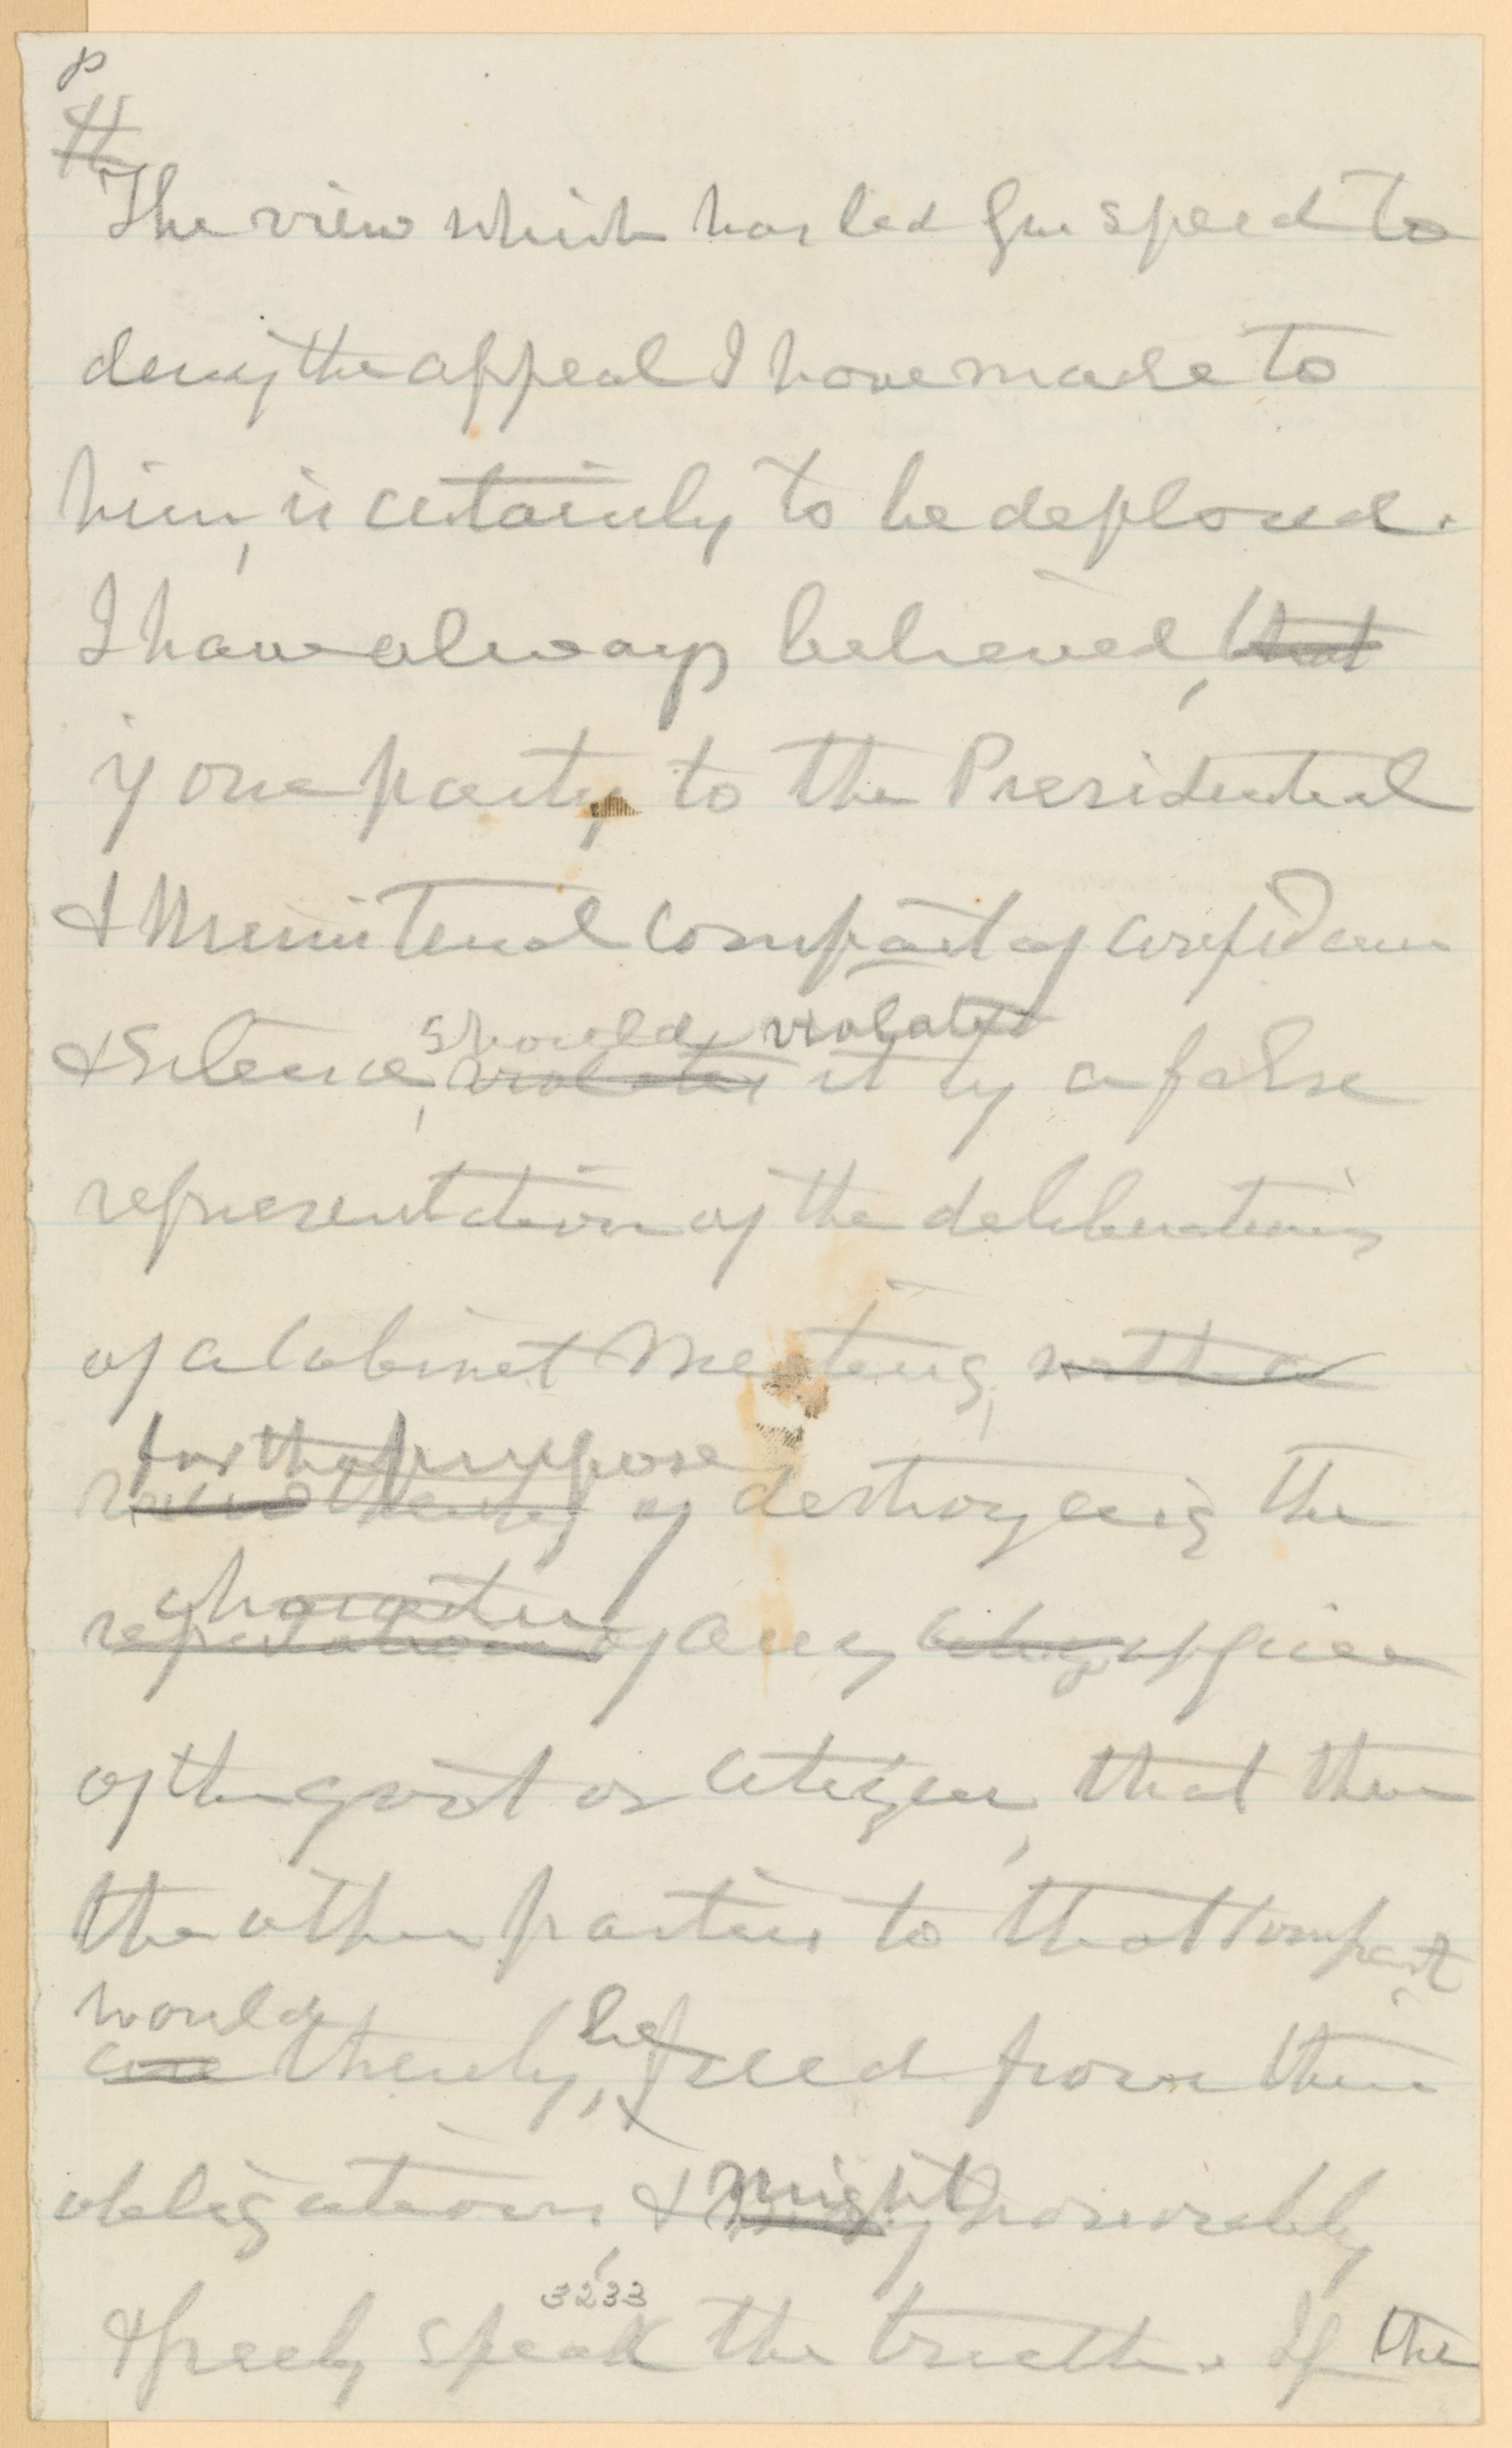 8
The view which has led Gen Speed to
deny the appeal I have made to
him, is certainly to be deplored.
I have always believed, that
if one party to the Presidential
& Ministerial compact of confidence
should violate
& silence, violates it by a false
representation of the deliberations
of a Cabinet Meeting, with a
for the purpose
of destroying the
character
reputation of any officer
of the govt or citizen, that then
the other parties to that compact
would be
are thereby, freed from their
obligations, & might honorably
3233
& freely speak the truth. If the